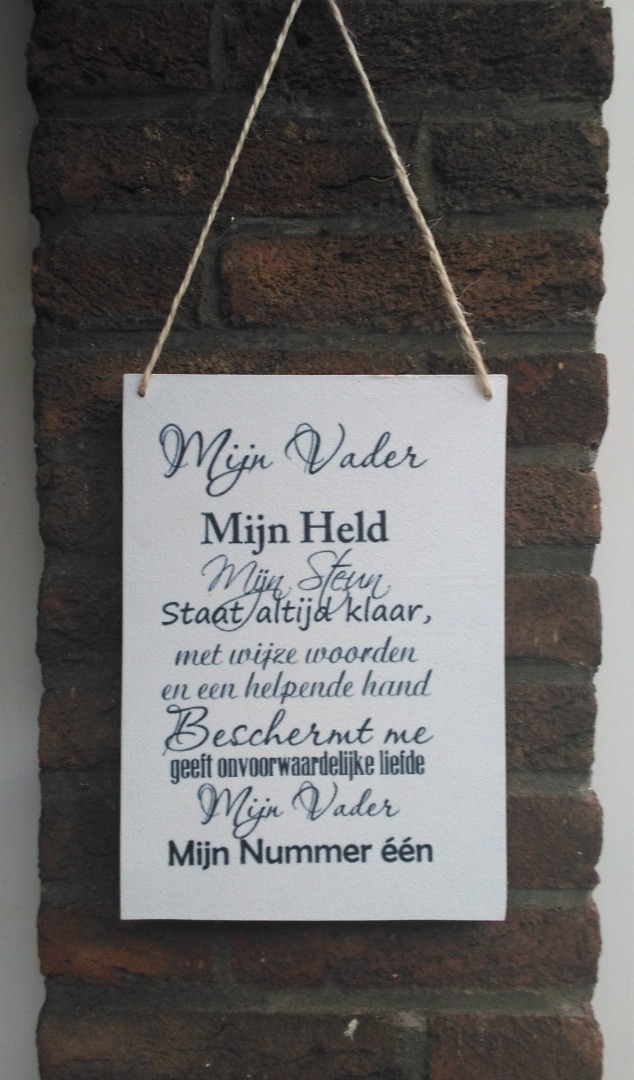 Mijn Vader
Mijn Held
Mijn Steun
Staat altijd klaar,
met wijze woorden
en een helpende hand
Beschermt me
geeft onvoorwaardelijke liefde
Mijn Vader
Mijn Nummer één